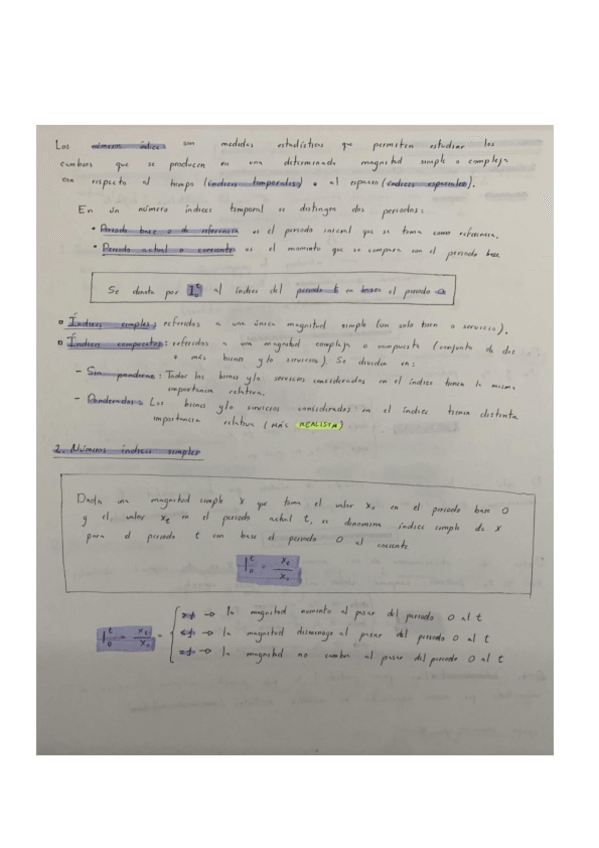 Los números índice son medidas estadísticas que permiten estudiar los
cambios que se producen en una determinada magnitud simple o compleja
con respecto al tiempo (índices temporales) o al espacio (índices espaciales).
En un número índices temporal se distingen dos periodos:
• Periodo base o de referencia es el periodo inicial que se toma como referencia.
• Periodo actual o corriente es el momento que se compara con el periodo base
Se denota por I₀ᵗ al índice del periodo t en base al periodo 0
Índices simples: referidos a una única magnitud simple (un solo bien o servicio).
Índices compuestos: referidos a una magnitud compleja o compuesta (conjunto de dos
o más bienes y/o servicios). Se dividen en:
- Sin ponderar: Todos los bienes y/o servicios considerados en el índice tienen la misma
importancia relativa.
- Ponderados: Los bienes y/o servicios considerados en el índice tienen distinta
importancia relativa (MÁS REALISTA)
2. Números índices simples
Dada una magnitud simple X que toma el valor x₀ en el periodo base 0
y el valor xₜ en el periodo actual t, se denomina índice simple de X
para el periodo t con base el periodo 0 al cociente
I₀ᵗ = xₜ / x₀
>1 → la magnitud aumenta al pasar del periodo 0 al t
I₀ᵗ = xₜ / x₀ = <1 → la magnitud disminuye al pasar del periodo 0 al t
=1 → la magnitud no cambia al pasar del periodo 0 al t